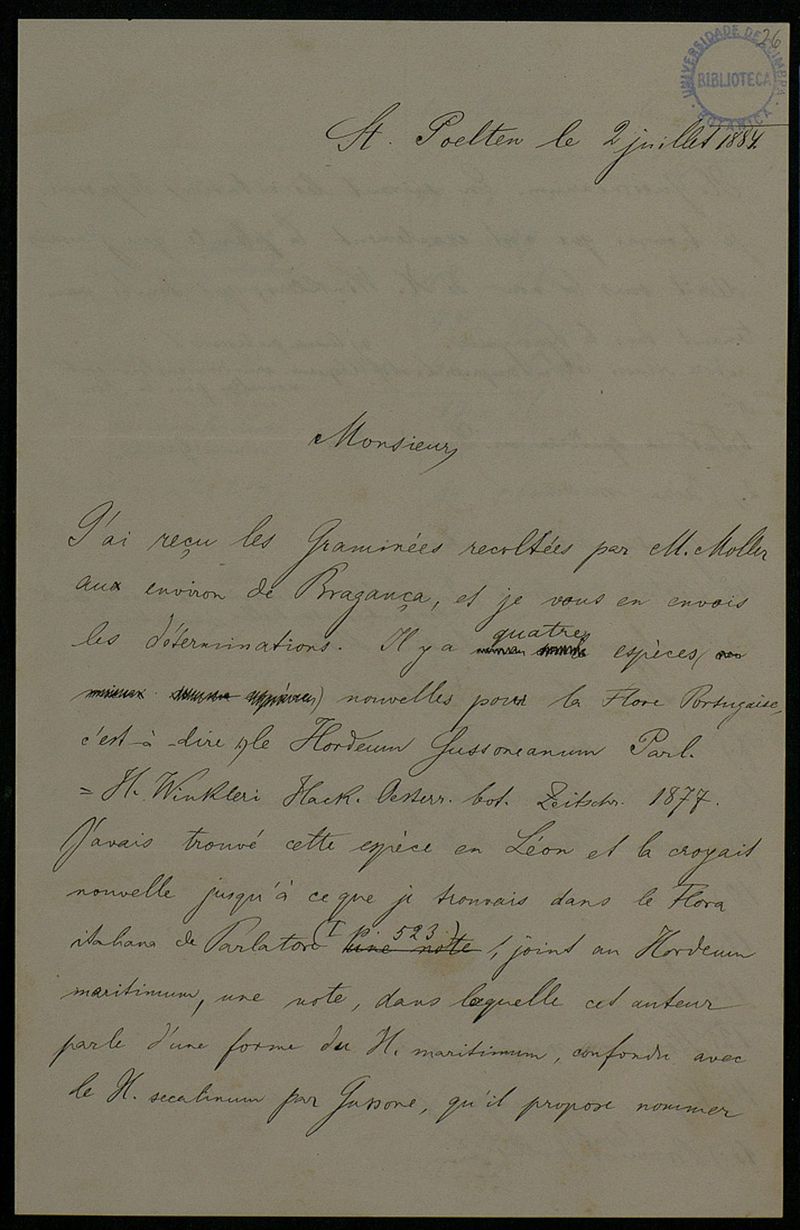 26
UNIVERSIDADE DE COIMBRA
BIBLIOTECA
BOTANICA
St. Poelten le 2 juillet 1884.
Monsieur,
J'ai reçu les Graminées recoltées par M. Moller
aux environ de Bragança, et je vous en envois
les déterminations. Il y a quatre espèces
nouvelles pour la Flore Portugaise,
c'est-à-dire 1) le Hordeum Gussoneanum Parl.
= H. Winkleri Hack. Oesterr. bot. Zeitschr. 1877.
J'avais trouvé cette espèce en Léon et la croyait
nouvelle jusqu'à ce que je trouvais dans le Flora
italiana de Parlatore (I p. 523) une note, joint au Hordeum
maritimum, une note, dans laquelle cet auteur
parle d'une forme du H. maritimum, confondu avec
le H. secalinum par Gussone, qu'il propose nommer